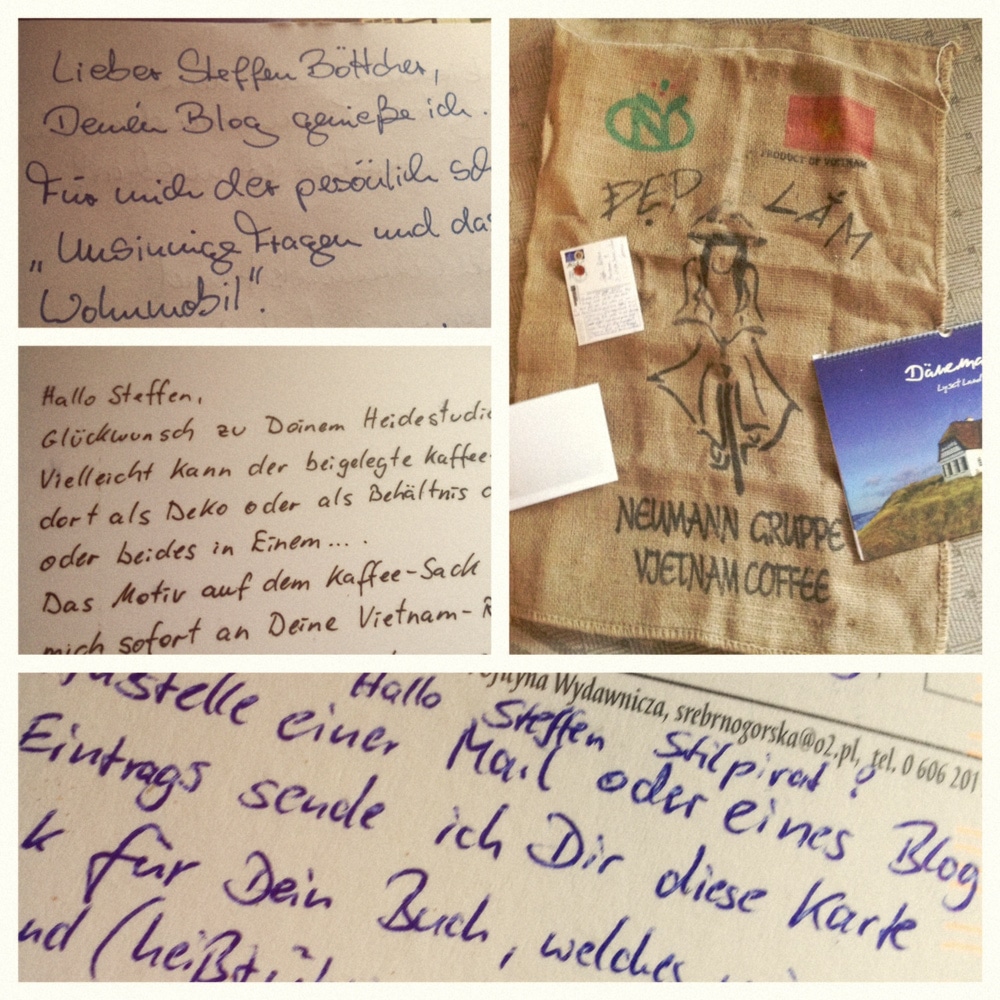 Lieber Steffen Böttcher,
Deinen Blog genieße ich.
Für mich der persönlich
"Unsinnige Fragen und das
Wohnmobil".
PRODUCT OF VIETNAM
ĐẸP LẮM
NEUMANN GRUPPE
VIETNAM COFFEE
Dänema
Lyset Land
Hallo Steffen,
Glückwunsch zu Deinem Heidestudio
Vielleicht kann der beigelegte Kaffee-
dort als Deko oder als Behältnis
oder beides in Einem... .
Das Motiv auf dem Kaffee-Sack
mich sofort an Deine Vietnam-R
Wydawnicza, srebrnogorska@o2.pl, tel. 0 606 201
Hallo Steffen Stilpirat!
stelle einer Mail oder eines Blog
Eintrags sende ich Dir diese Karte
k für Dein Buch, welches
nd (heiß